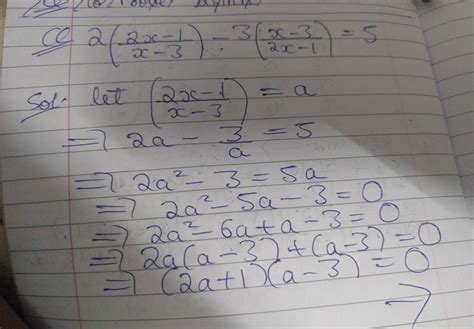 Q 2((2x-1)/(x-3)) - 3((x-3)/(2x-1)) = 5
Sol. let ((2x-1)/(x-3)) = a
⇒ 2a - 3/a = 5
⇒ 2a² - 3 = 5a
⇒ 2a² - 5a - 3 = 0
⇒ 2a² - 6a + a - 3 = 0
⇒ 2a(a-3) + (a-3) = 0
⇒ (2a+1)(a-3) = 0
→